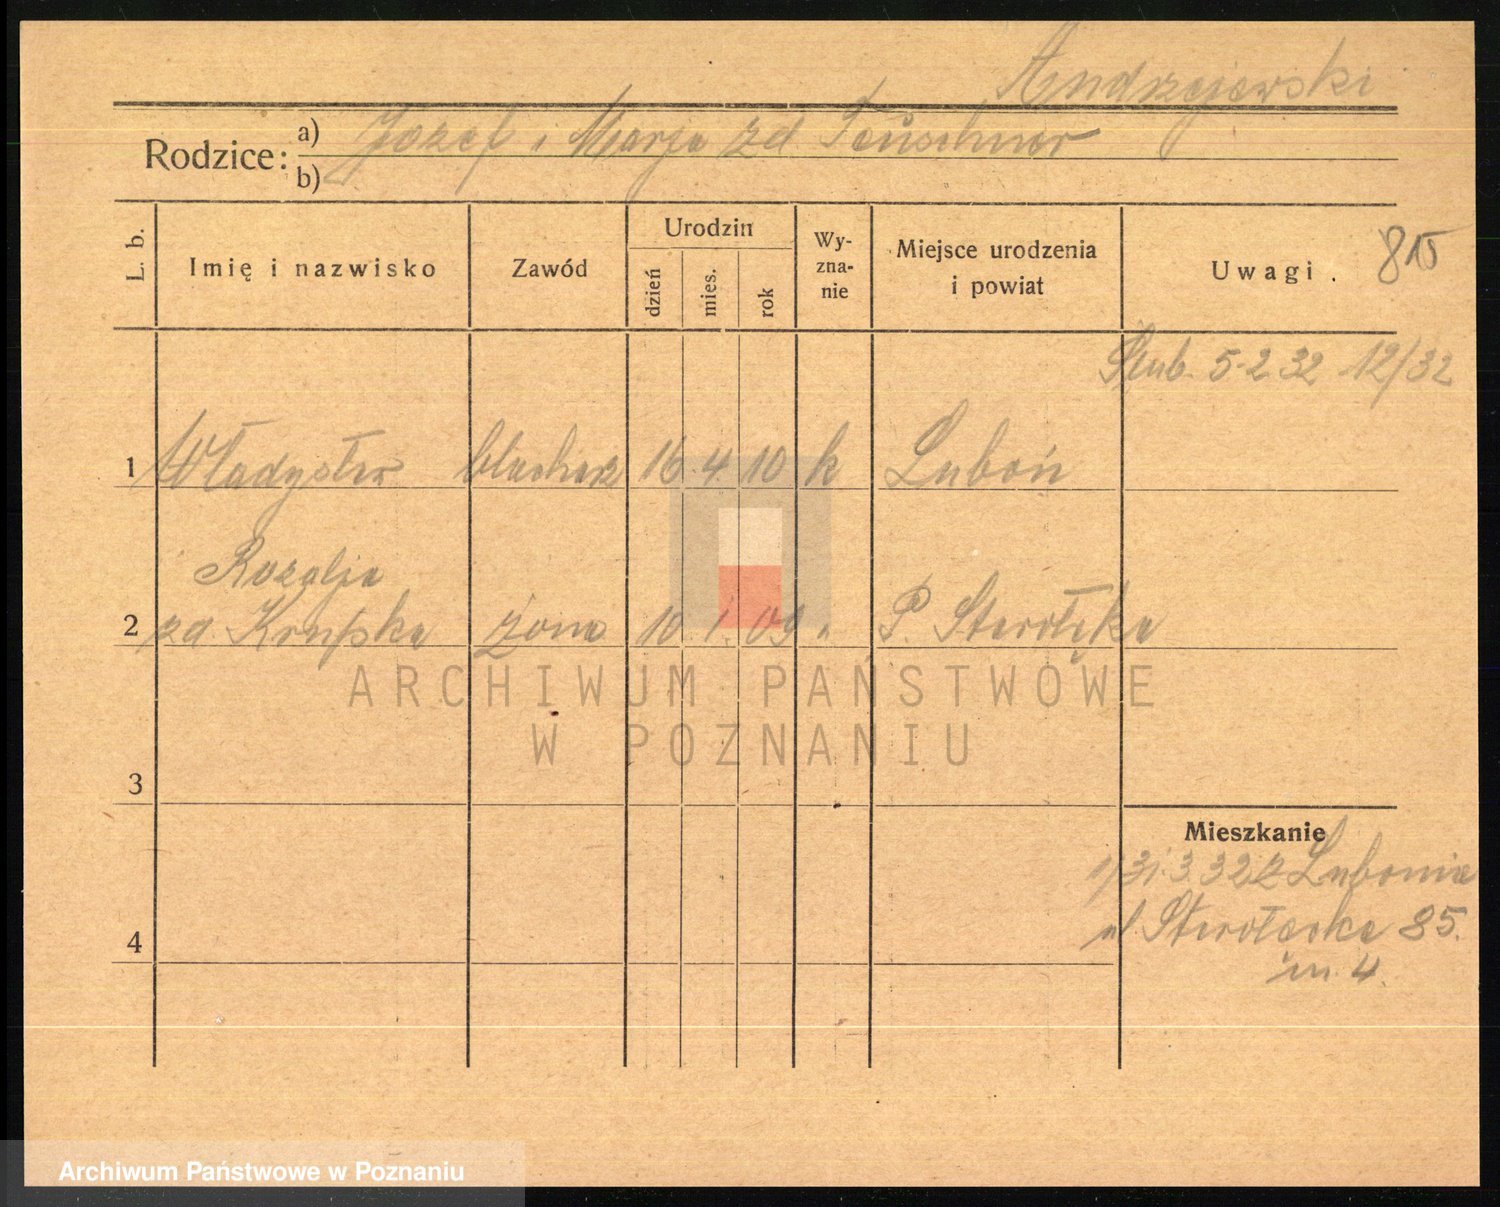 Andrzejewski
Rodzice: a) Józef i Marja zd. Teuschner
b)
L. b. Imię i nazwisko Zawód Urodzin dzień mies. rok Wy-zna-nie Miejsce urodzenia i powiat Uwagi. 815
Ślub. 5-2 32 12/32
1 Władysław blacharz 16 4 10 k Luboń
Rozalja
2 zd. Krupska żona 10. 1. 09 " P. Starołęka
ARCHIWUM PAŃSTWOWE
W POZNANIU
3
Mieszkanie
1) 31.3.32 z Lubonia
ul Starołęcka 85.
4
m. 4.
Archiwum Państwowe w Poznaniu